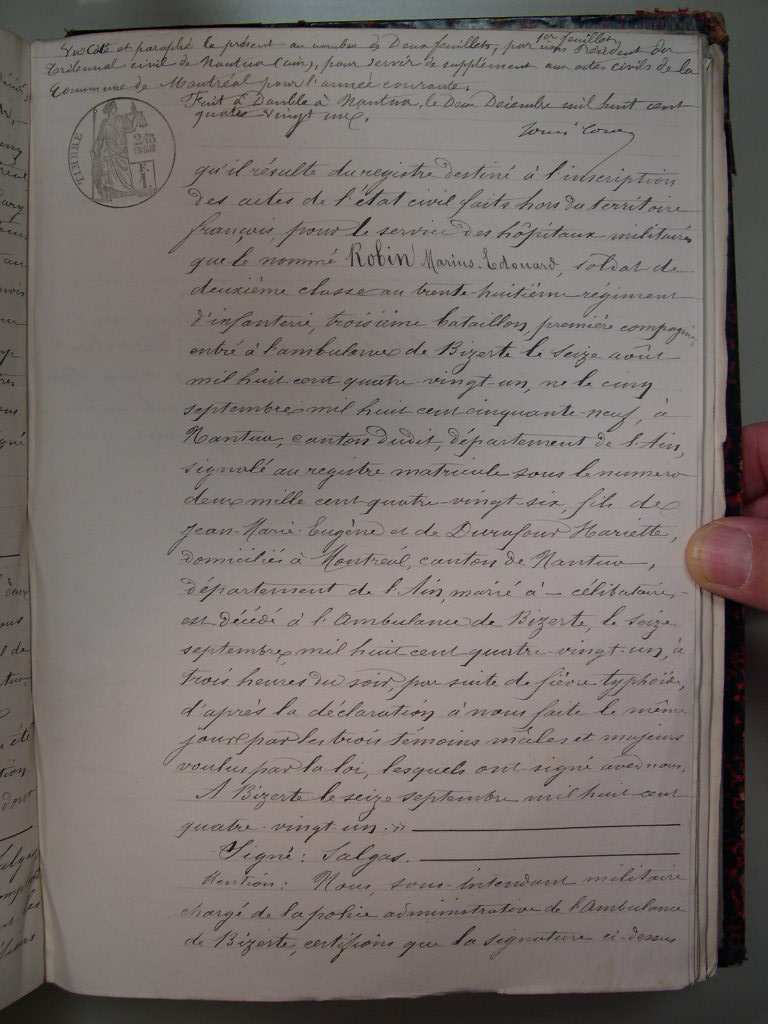 Vu Coté et paraphé le présent au nombre de Deux feuillets, par nous Président du
1er feuillet
Tribunal civil de Nantua (Ain), pour servir de supplément aux actes civils de la
Commune de Montréal pour l'année courante.
Fait à Double à Nantua, le Deux Décembre mil huit cent
quatre vingt un.
TIMBRE
qu'il résulte du registre destiné à l'inscription
des actes de l'état civil faits hors du territoire
français, pour le service des hôpitaux militaires
que le nommé Robin Marius-Edouard, soldat de
deuxième classe au trente-huitième régiment
d'infanterie, troisième bataillon, première compagnie,
entré à l'ambulance de Bizerte le seize août
mil huit cent quatre-vingt-un, né le cinq
septembre mil huit cent cinquante-neuf, à
Nantua, canton dudit, département de l'Ain,
signalé au registre matricule sous le numero
deux mille cent quatre-vingt-six, fils de
Jean-Marie-Eugène et de Durafour Hariette,
domiciliés à Montréal, canton de Nantua,
département de l'Ain, marié à - célibataire,
est décédé à l'Ambulance de Bizerte, le seize
septembre mil huit cent quatre-vingt-un, à
trois heures du soir, par suite de fièvre typhoïde,
d'après la déclaration à nous faite le même
jour par les trois témoins mâles et majeurs
voulus par la loi, lesquels ont signé avec nous.
A Bizerte le seize septembre mil huit cent
quatre-vingt un.»
Signé: Salgas.
Mention: Nous, sous-intendant militaire
chargé de la police administrative de l'Ambulance
de Bizerte, certifions que la signature ci-dessus